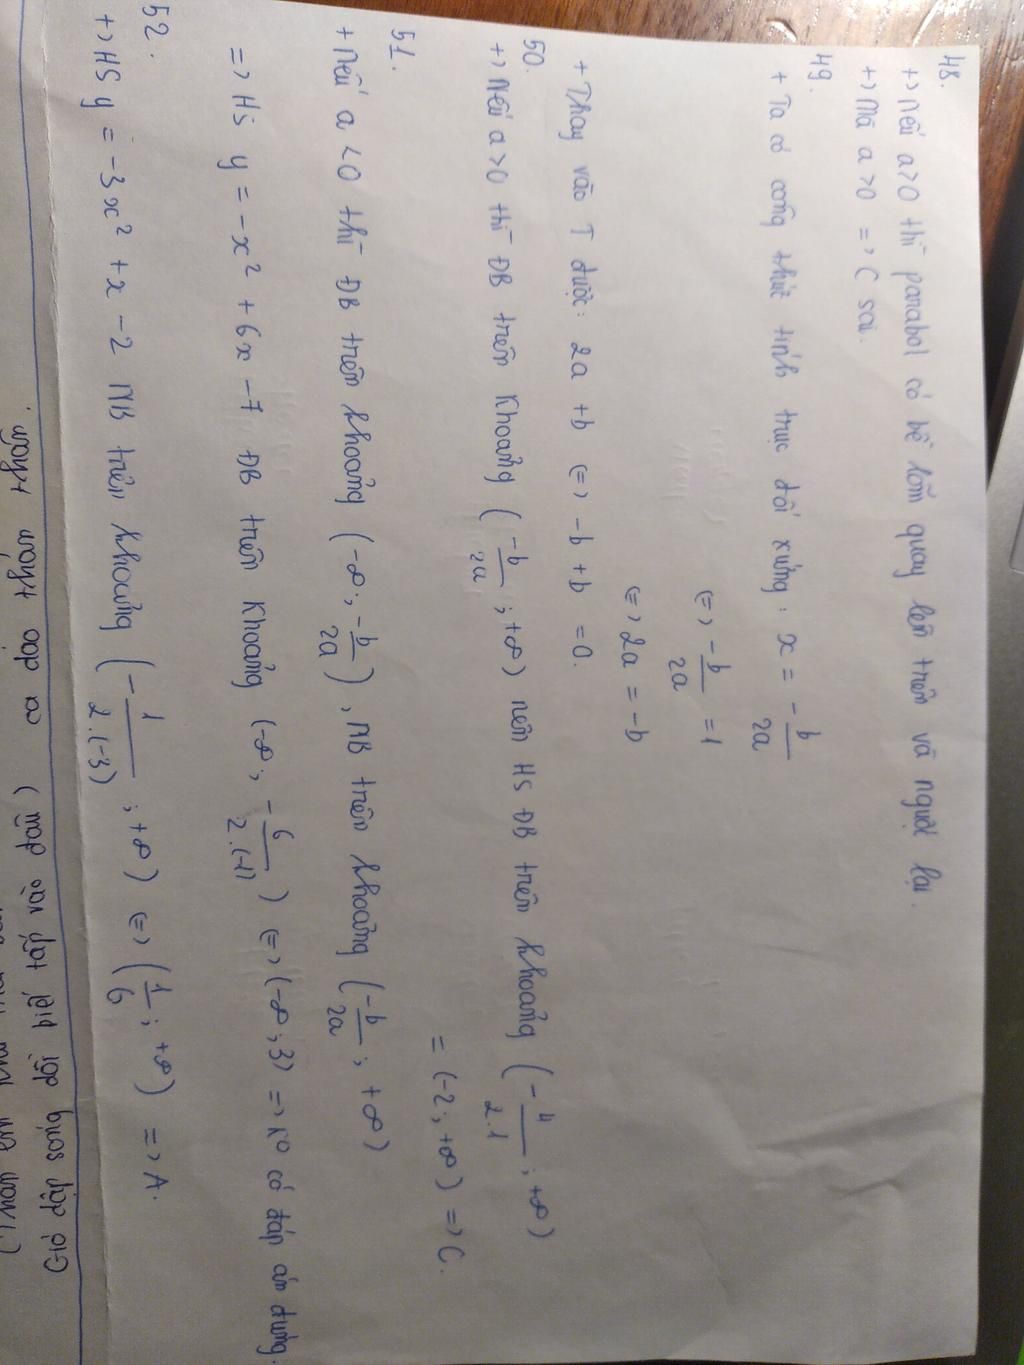 48.
+> Nếu a>0 thì parabol có bề lõm quay lên trên và ngược lại.
+> Mà a>0 => C sai.
49.
+ Ta có công thức tính trục đối xứng: x = -b/2a
<=> -b/2a = 1
<=> 2a = -b
+ Thay vào T được: 2a + b <=> -b + b = 0.
50.
+> Nếu a>0 thì ĐB trên khoảng (-b/2a; +∞) nên HS ĐB trên khoảng (-4/2.1; +∞)
= (-2; +∞) => C.
51.
+ Nếu a<0 thì ĐB trên khoảng (-∞; -b/2a), NB trên khoảng (-b/2a; +∞)
=> HS y = -x² + 6x - 7 ĐB trên khoảng (-∞; -6/2.(-1)) <=> (-∞; 3) => K⁰ có đáp án đúng.
52.
+> HS y = -3x² + x - 2 NB trên khoảng (-1/2.(-3); +∞) <=> (1/6; +∞) => A.
Gió dập sóng dồi biết tấp vào đâu) ca dao than thân.